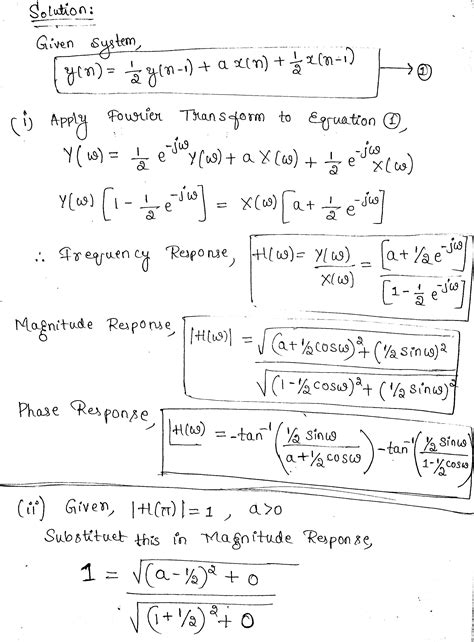 Solution:
Given system,
y(n) = 1/2 y(n-1) + a x(n) + 1/2 x(n-1) → ①
(i) Apply Fourier Transform to Equation ①,
Y(ω) = 1/2 e^-jω Y(ω) + a X(ω) + 1/2 e^-jω X(ω)
Y(ω) [1 - 1/2 e^-jω] = X(ω) [a + 1/2 e^-jω]
∴ Frequency Response, H(ω) = Y(ω)/X(ω) = [a + 1/2 e^-jω] / [1 - 1/2 e^-jω]
Magnitude Response, |H(ω)| = √((a + 1/2 cosω)² + (1/2 sinω)²) / √((1 - 1/2 cosω)² + (1/2 sinω)²)
Phase Response, ∠H(ω) = -tan⁻¹((1/2 sinω)/(a + 1/2 cosω)) - tan⁻¹((1/2 sinω)/(1 - 1/2 cosω))
(ii) Given, |H(π)| = 1, a>0
Substituet this in Magnitude Response,
1 = √((a - 1/2)² + 0) / √((1 + 1/2)² + 0)